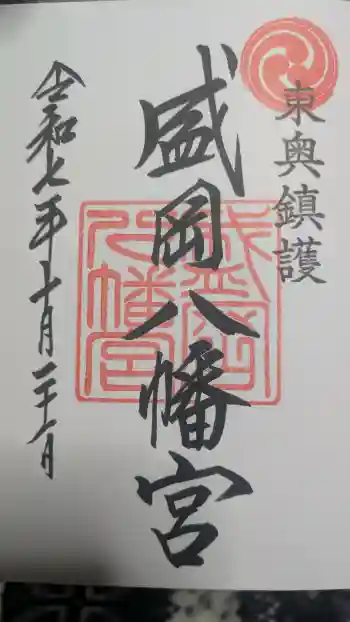 東奥鎮護
盛岡八幡宮
令和七年十月二十八日